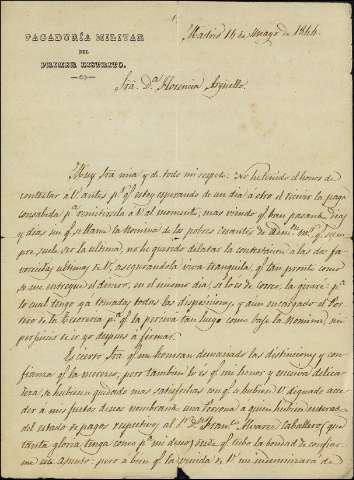 PAGADURÍA MILITAR
DEL
PRIMER DISTRITO.
Madrid 14 de Mayo de 1844.
Sra. Dª Florencia Aguello.
Muy Sra mia y de todo mi respeto: No he tenido el honor de
contestar a V. antes pr. qe. estoy esperando de un dia á otro el recivir la paga
consabida pª remitirsela á V. al momento; mas viendo qe. han pasado dias y
dias sin qe. se llame la Nomina de los pobres Cesantes de qe. siem-
pre, suele ser la ultima, no he querido dilatar la contestacion á las dos fa-
vorecidas ultimas de V. asegurandola viva tranquila; qe. tan pronto como
se me entregue el dinero, en el mismo dia, si lo es de Correo, le girare; pª
lo cual tengo ya tomadas todas las disposiciones, y aun encargado el Por-
tero de la Tesoreria pª qe. la perciva tan luego como baje la Nomina, sin
perjuicio de ir yo despues á firmar.
Es cierto Sra. qe. me honran demasiado las distinciones y con-
fianzas qe. la merezco, pero tambien lo es qe. mi honor y excesiva delica-
deza, se hubieran quedado mas satisfechas con qe. se hubiera V. dignado acce-
der á mis justos deseos nombrando una Persona á quien hubiese enterado
del estado de pagas respectivo al Sr. Dn. Franco. Alvarez Caballero (que
tanta gloria tenga como pª mi deseo) desde qe. tubo la bondad de confiar-
me este asunto: pero á bien qe. la venida de V. me indemnizará de